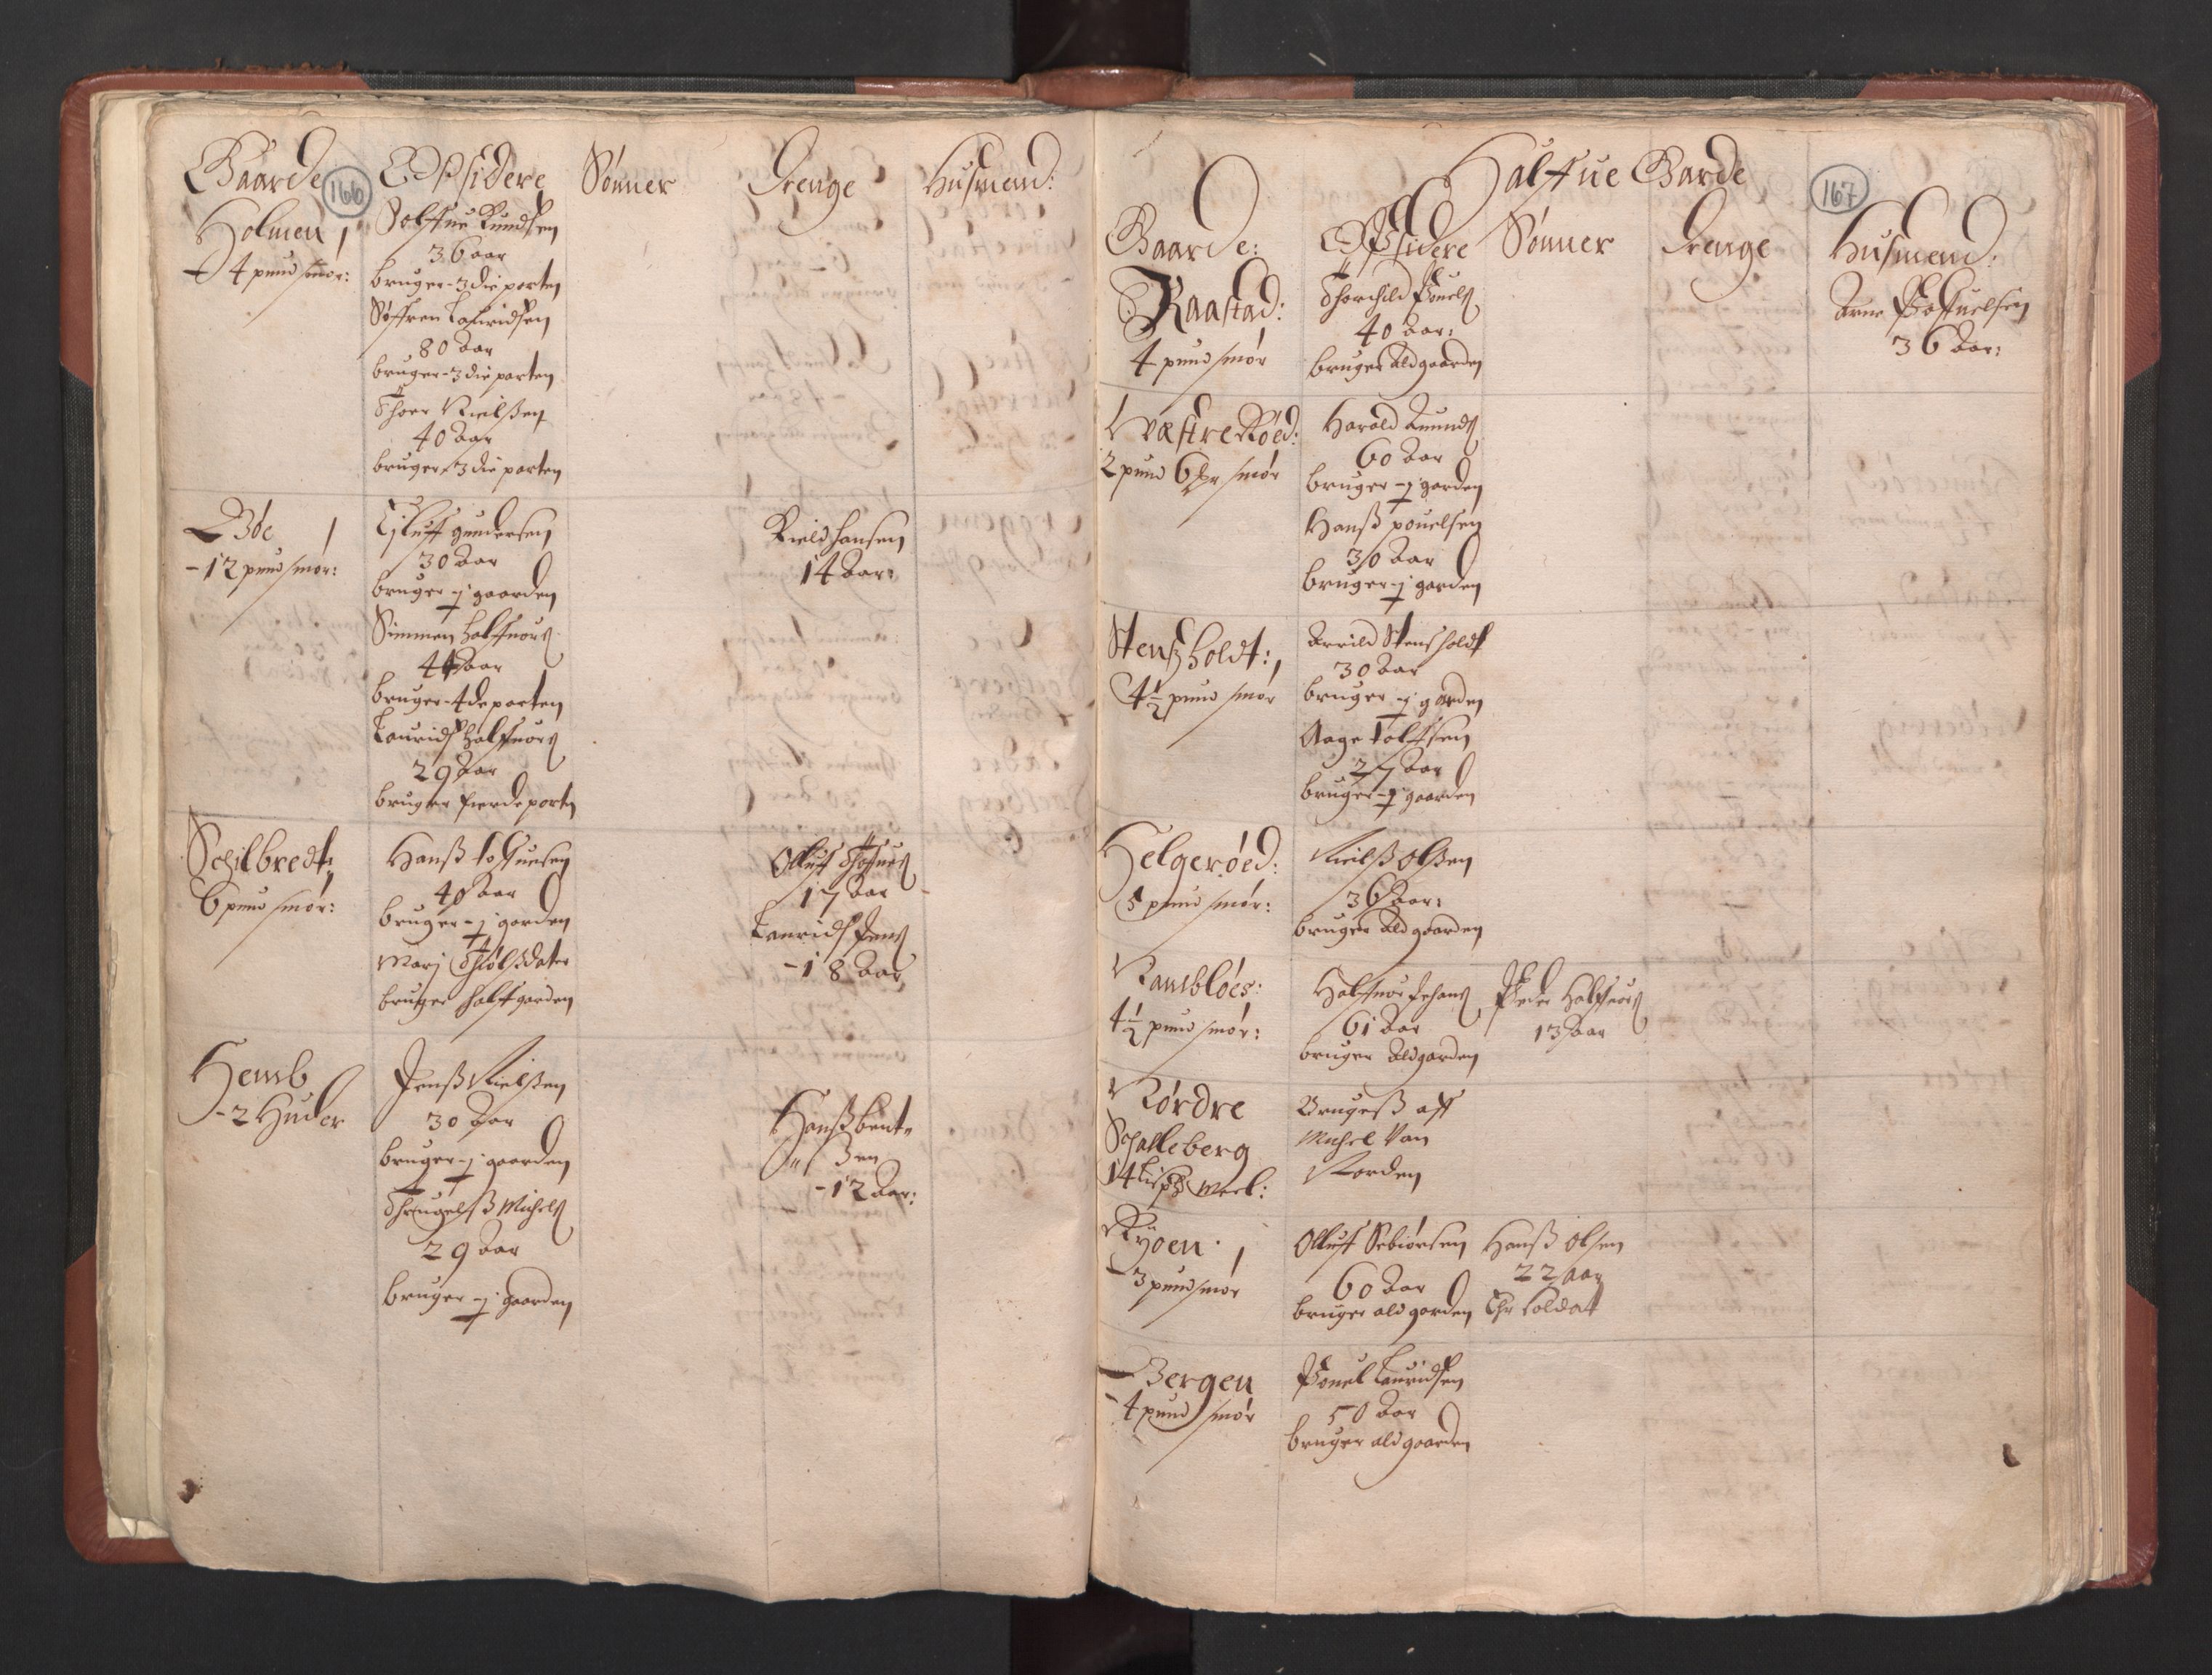 Gaarde
166
Opsidere
Sønner
Drenge
Husmend:
Holmen
4 pund smør:
Rolfue Knudsen
36 aar
bruger - 3die parten
Søffren Lauridsen
80 Aar
bruger - 3die parten
Thoer Nielsen
40 Aar
bruger 3die parten
Bøe
- 12 pund smør:
Elluff gundersen
30 Aar
bruger - ½ gaarden
Simmen Halfuors
40 Aar
bruger - 4de parten
Laurids Halfuors
29 Aar
bruger fierde part
Kield hansen
14 Aar:
Schilbredt
6 pund smør:
Hanß tolfuesen
40 Aar
bruger - ½ garden
Marj Thiøls dater
bruger halff garden
Olluff
17 Aar
Laurids Jens
- 18 Aar
Hemb
- 2 Huder
Jenß Nielßen
30 Aar
bruger - ½ gaarden
Thrugelß Michels
29 Aar
bruger - ½ gaarden
Hanß bent"
" ßen
- 12 Aar:
Halffue Garde
167
Gaarde:
Opsidere
Sønner
Drenge
Husmend:
Raastad:
4 pund smør
Thorchild Pouels
40 Aar:
bruger Ald gaarden
Arne Poffuelsen
36 Aar:
Wæstre Røed:
2 pund 6 smør
Harald Amunds
60 Aar
bruger - ½ garden
Hanß pouelsen
30 Aar
bruger - ½ garden
Stenßholdt:
4½ pund smør
Arvild Stensholdt
30 Aar
bruger - ½ garden
Aage tolfsen
27 Aar
bruger - ½ gaarden
Helgerøed:
5 pund smør:
Nielß Olßen
36 Aar:
bruger Ald gaarden
Rambløes:
4½ pund smør:
Halfuor Johans
61 Aar
bruger Ald garden
Peder Halfuors
13 Aar
Nørdre
Schalleberg
14 Meel:
Brugeß aff
Michel Van
Norden
Ryoen
- 3 pund smør
Olluff Sebiørsen
60 Aar
bruger ald garden
Hanß Olsen
22 Aar
Ehr soldat
Bergen
- 4 pund smør
Pouel Lauridsen
50 Aar
bruger ald gaarden